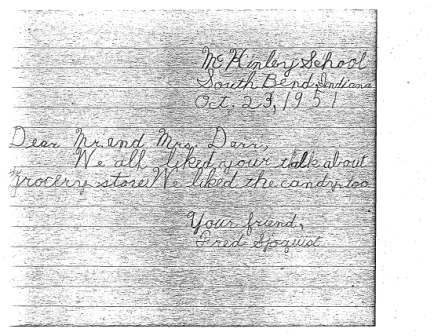 McKinley School
South Bend, Indiana
Oct. 23, 1951
Dear Mr. and Mrs. Darr,
We all liked your talk about
grocery stores. We liked the candy too
Your friend,
Fred